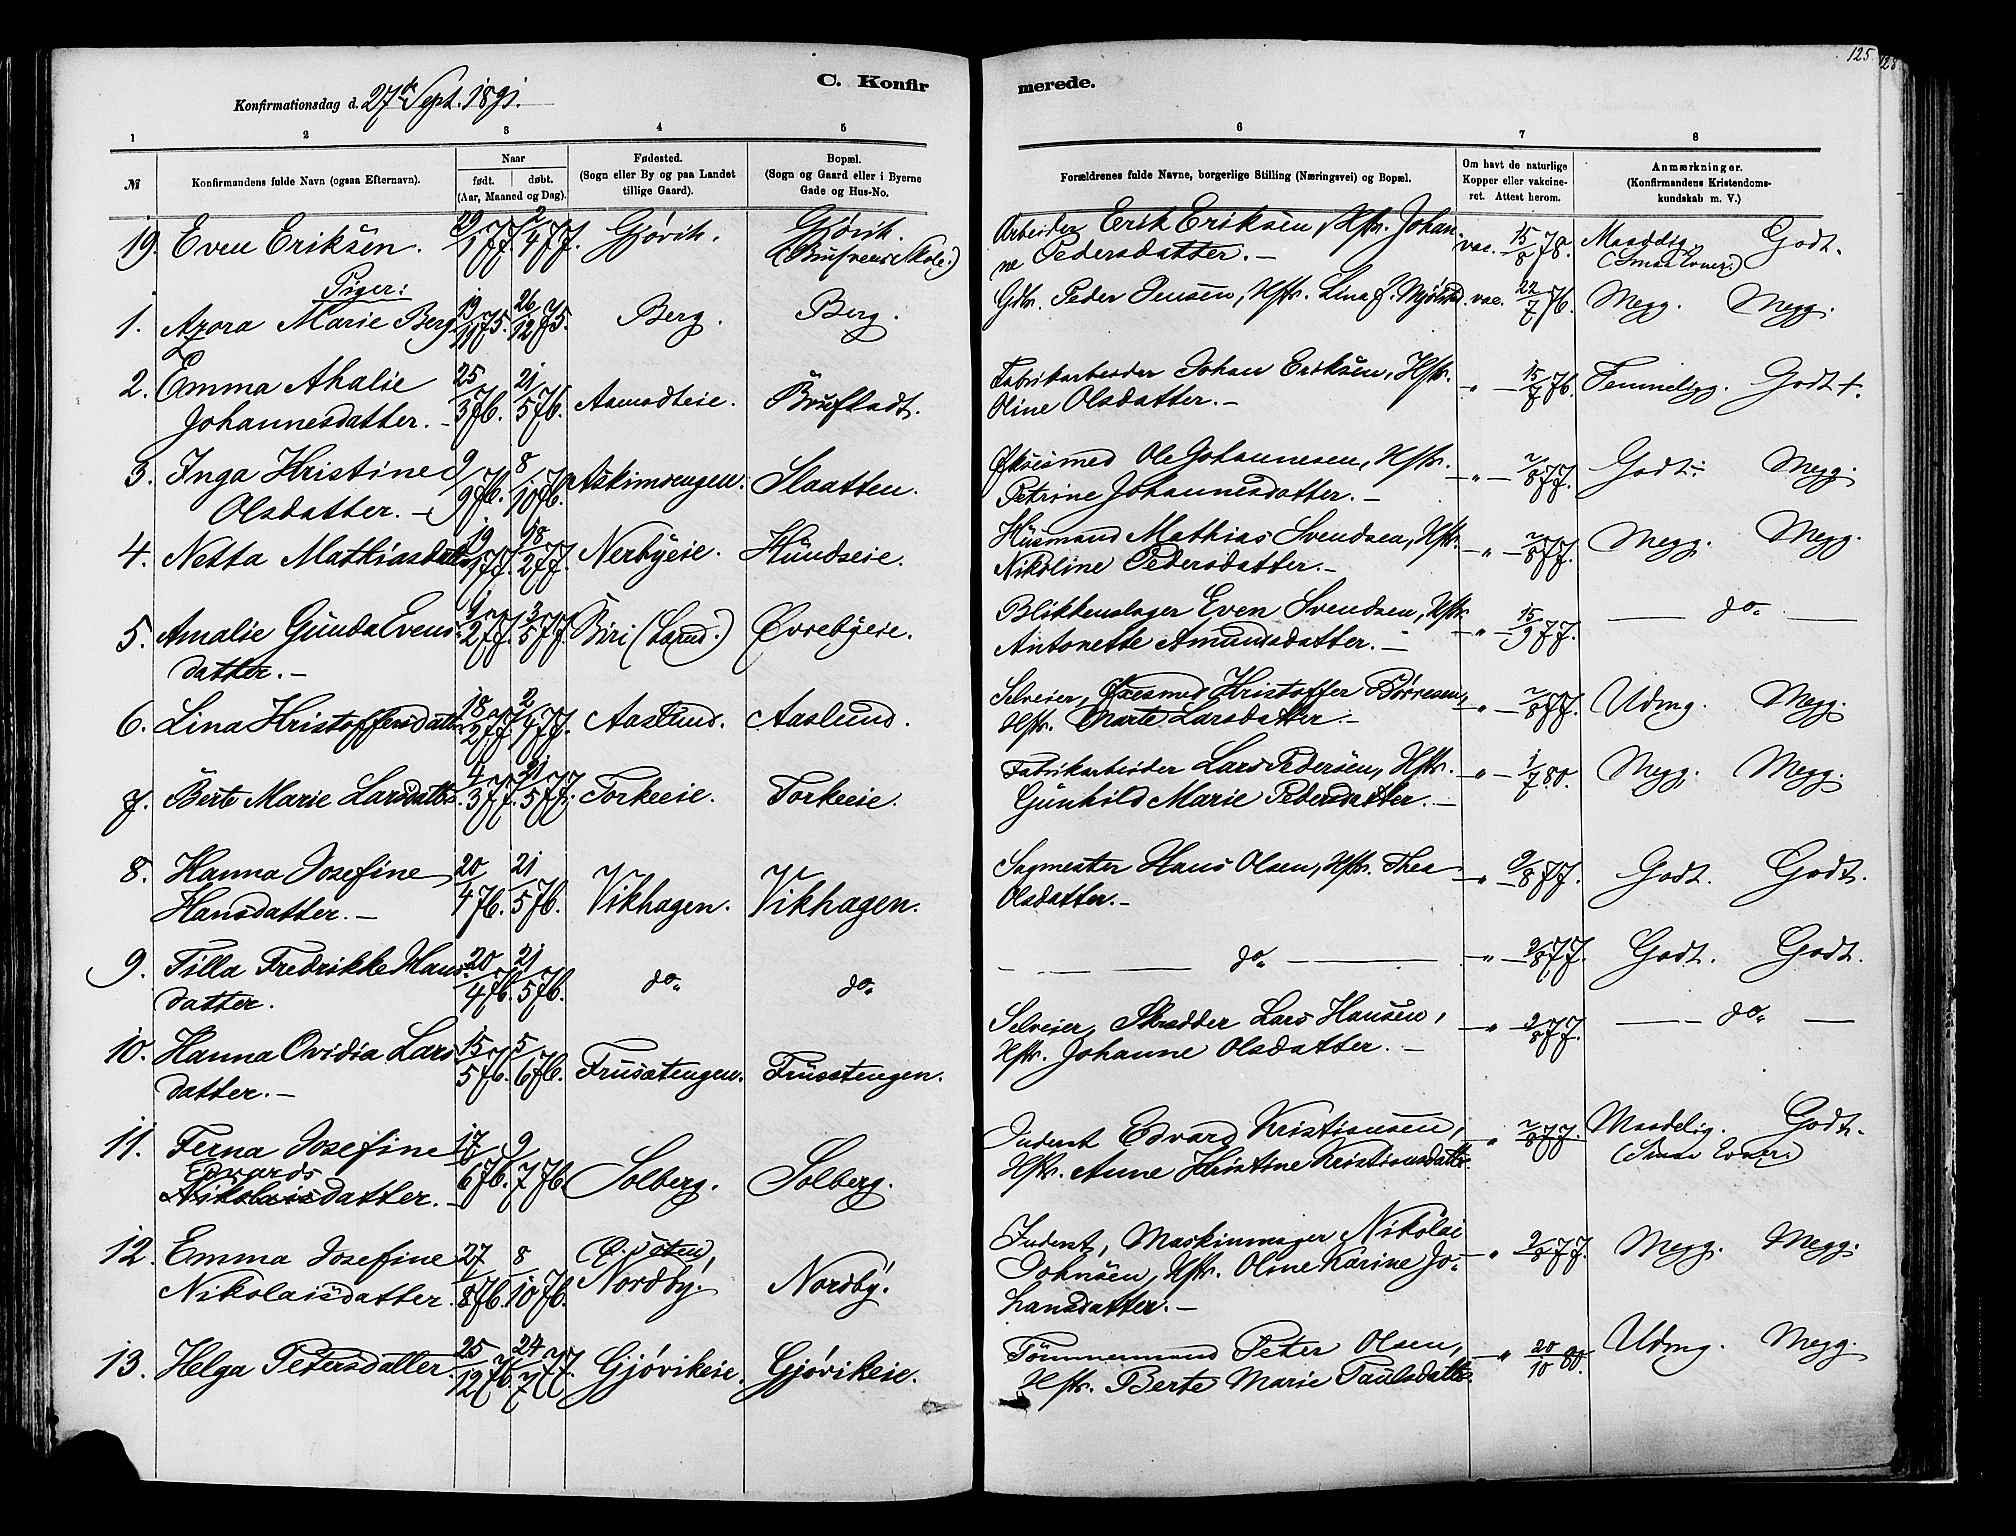 125
C. Konfir
merede.
Konfirmationsdag d. 27de Sept. 1891.
1 2 3 4 5 6 7 8
№
Konfirmandens fulde Navn (ogsaa Efternavn).
Naar
født. døbt.
(Aar, Maaned og Dag).
Fødested.
(Sogn eller By og paa Landet
tillige Gaard).
Bopæl.
(Sogn og Gaard eller i Byerne
Gade og Hus-No.
Forældrenes fulde Navne, borgerlige Stilling (Næringsvei) og Bopæl.
Om havt de naturlige
Kopper eller vakcine-
ret. Attest herom.
Anmærkninger.
(Konfirmandens Kristendoms-
kundskab m. V.)
19. Even Eriksen. 29/1 77. 2/4 77. Gjøvik. Gjøvik. Arbeider Erik Eriksen, Hstr. Johan- vac. 15/8 78. Maadelig. Godt.
ne Pedersdatter. –
Piger:
1. Azora Marie Berg. 19/11 75. 26/12 75. Berg. Berg. Gdbr. Peder Jensen, Hstr. Lina f. Mjølstad. vac. 22/7 76. Megg. Megg.
2. Emma Athalie 25/3 76. 21/5 76. Aamodteie. Brufladt. Fabrikarbeider Johan Eriksen, Hstr. " – 15/7 76. Temmeligg. Godt +.
Johannesdatter. – Oline Olsdatter. –
3. Inga Kristine 9/9 76. 8/10 76. Askimsengen. Slaatten. Øksesmed Ole Johannesen, Hstr. – " – 2/8 77. Godt ÷ Megg.
Olsdatter. – Petrine Johannesdatter. –
4. Netta Mathiasdatt. 19/1 77. 18/2 77. Nerbyeie. Hundseie. Husmand Mathias Svendsen, Hstr. – " – 2/8 77. Megg. Megg.
Nikoline Pedersdatter. –
5. Amalie Gunda Evens- 1/2 77. 3/5 77. Biri (Land.) Øvrebyeie. Blikkenslager Even Svendsen, Hstr. – " – 15/9 77. — do" —
datter. – Antonette Amundsdatter. –
6. Lina Kristoffersdatter 18/2 77. 2/4 77. Aaslund. Aaslund. Selveier, Øxesmed Kristoffer Børresen, – " – 2/8 77. Udmg. Megg.
Hstr. Marte Larsdatter –
7. Berte Marie Larsdatter. 4/3 77. 21/5 77. Torkeeie. Torkeeie. Fabrikarbeider Lars Pedersen, Hstr. – " – 1/7 80. Megg. Megg.
Gunhild Marie Pedersdatter. –
8. Hanna Josefine 20/4 76. 21/5 76. Vikhagen. Vikhagen. Sagmester Hans Olsen, Hstr. Thea – " – 2/8 77. Godt. Godt.
Hansdatter. – Olsdatter. –
9. Tilla Fredrikke Hans- 20/4 76. 21/5 76. do" do" — do" — – " – 2/8 77. Godt. Godt.
datter.
10. Hanna Ovidia Lars 15/5 76. 5/6 76. Frusætengen. Frusetengen. Selveier, Skrædder Lars Hansen, – " – 2/8 77. — do" —
datter. – Hstr. Johanne Olsdatter. –
11. Ferna Josefine 17/6 76. 9/7 76. Solberg. Solberg. Inderst Edvard Kristiansen, " 2/8 77. Maadelig. Godt.
Edvards
Nikolaisdatter. – Hstr. Anne Kristine Kristiansdatter.
12. Emma Josefine 27/8 76. 8/10 76. Nordby. Nordby. Inderst, Maskinmager Nikolai – " 2/8 77. Megg. Megg.
Nikolaisdatter. Johnsen, Hstr. Oline Karine Jo-
hansdatter. –
13. Helga Petersdatter. 25/12 76. 24/7 77. Gjøvikeie. Gjøvikeie. Tømmermand Peter Olsen, – " 20/10 80. Udmg. Megg
Hstr. Berte Marie Paulsdatter.